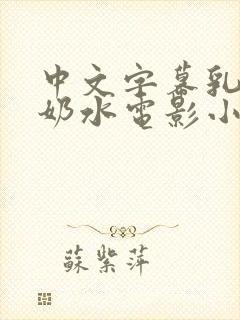 中文字幕乳
奶水电影小
蘇紫萍